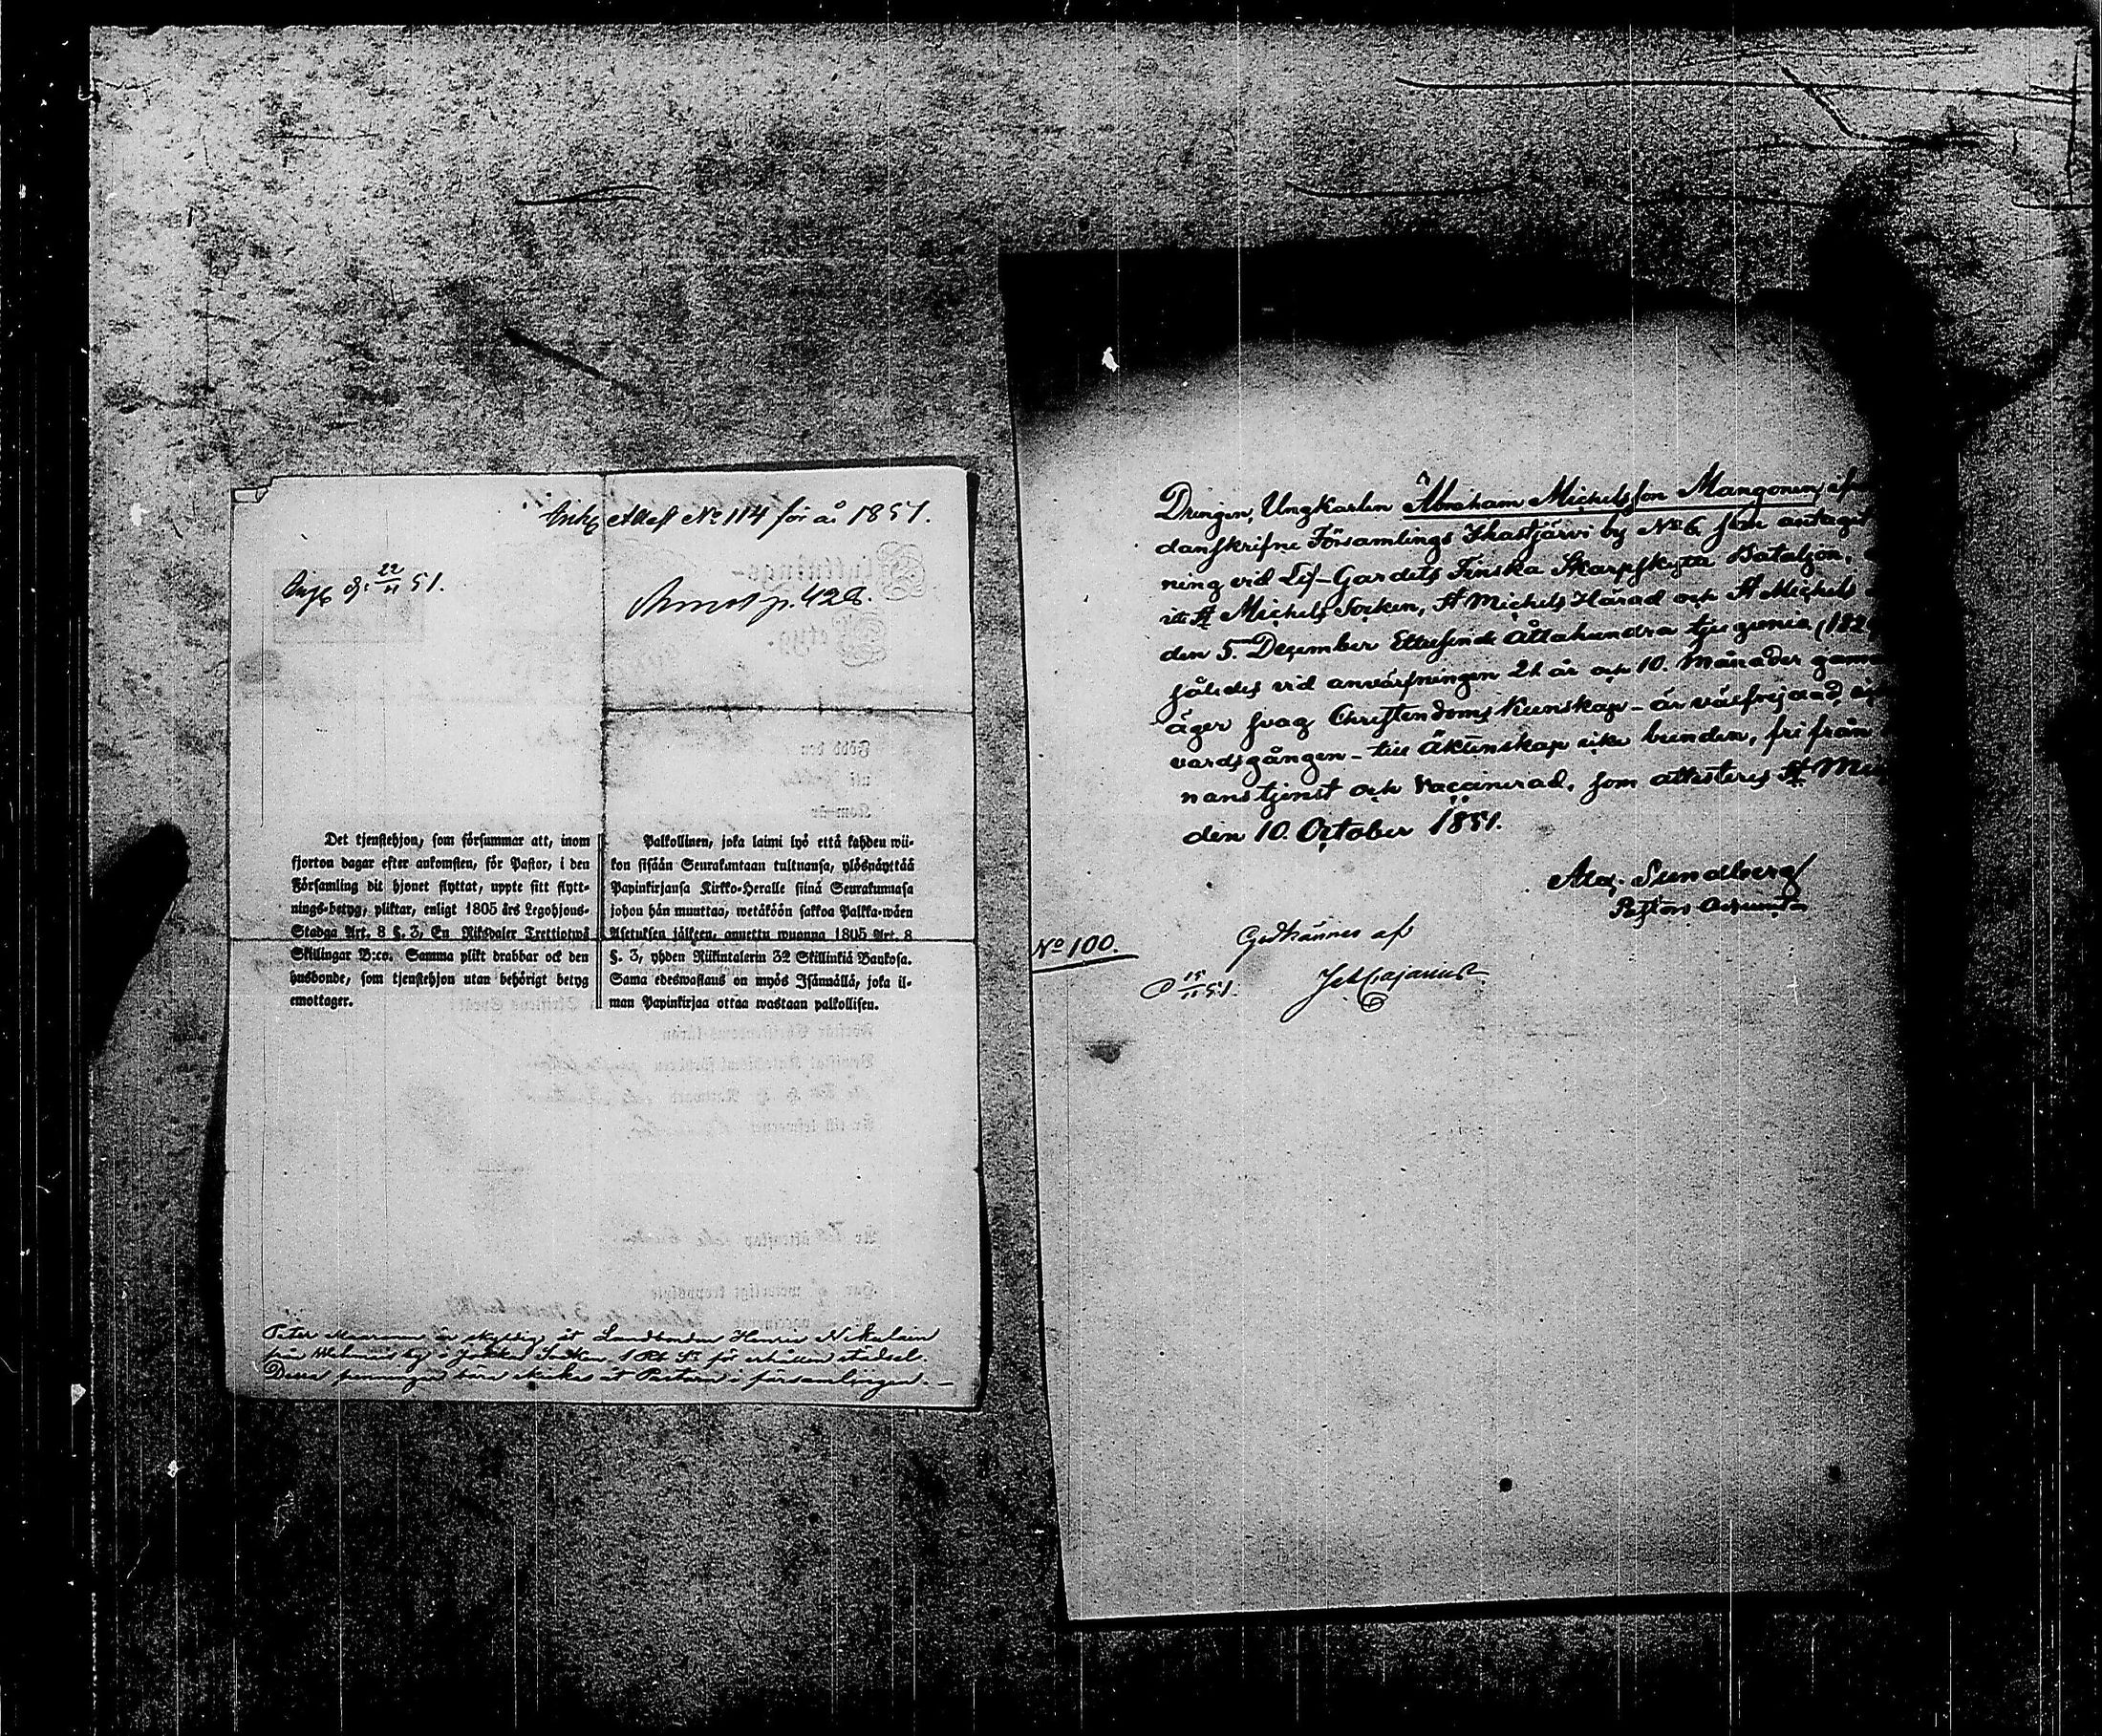 Attest No 114 för år 1851.
22/11 51.
p. 428.
Det tjenstehjon, som försummar att, inom
fjorton dagar efter ankomsten, för Pastor, i den
Församling dit hjonet flyttat, uppte sitt flytt-
nings-betyg, pliktar, enligt 1805 års Legohjons-
Stadga Art. 8 §. 3, En Riksdaler Trettiotwå
Skillingar B:co. Samma plikt drabbar ock den
husbonde, som tjenstehjon utan behörigt betyg
emottager.
Palkollinen, joka laimi lyö että kahden wii-
kon sisään Seurakuntaan tultuansa, ylösnäyttää
Papinkirjansa Kirkko-Heralle siinä Seurakunnasa
johon hän muuttaa, wetäköön sakkoa Palkka-wäen
Asetuksen jälkeen, annettu wuonna 1805 Art. 8
§. 3, yhden Riikintalerin 32 Skillinkiä Bankosa.
Sama edeswastaus on myös Isännällä, joka il-
man Papinkirjaa ottaa wastaan palkollisen.
Peter är skyldig åt Landbonden Henric Nikulain
från by i Jokkas Socken 1 Rb Sr för erhållen städsel.
Dessa penningar böra skickas åt Pastorn i församlingen.
Drengen, Ungkarlen Abraham Michelsson Mangonen
danskrifne Församlings Ihastjärvi by No 6, som antagit
ning vid Lif-Gardets Finska Skarpskytte Bataljon,
uti St Michels Socken, St Michels Härad och St Michels
den 5. December Ettusende Åttahundra tjugunio (182
således vid anvärfningen 21 år och 10. Månader
äger svag Christendoms Kunskap - är välfrejdad,
vardsgången - till Äktenskap icke bunden, fri från
nanstjenst och vaccinerad, som attesteras St
den 10. October 1851.
Alex. Sundberg
Pastors Adjunct
No 100.
Godkännes af
15/11 51.
Joh Cajanus